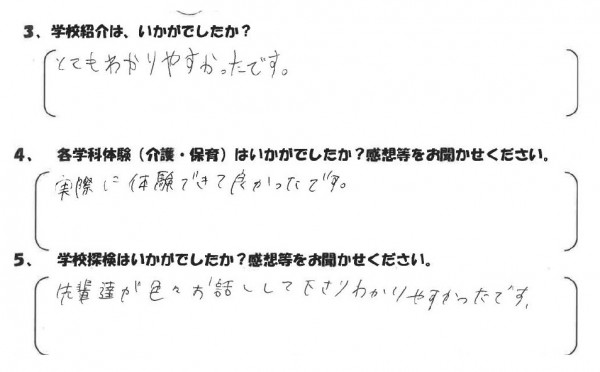 3、学校紹介は、いかがでしたか？
とてもわかりやすかったです。
4、 各学科体験（介護・保育）はいかがでしたか？感想等をお聞かせください。
実際に体験できて良かったです。
5、 学校探検はいかがでしたか？感想等をお聞かせください。
先輩達が色々お話しして下さりわかりやすかったです。